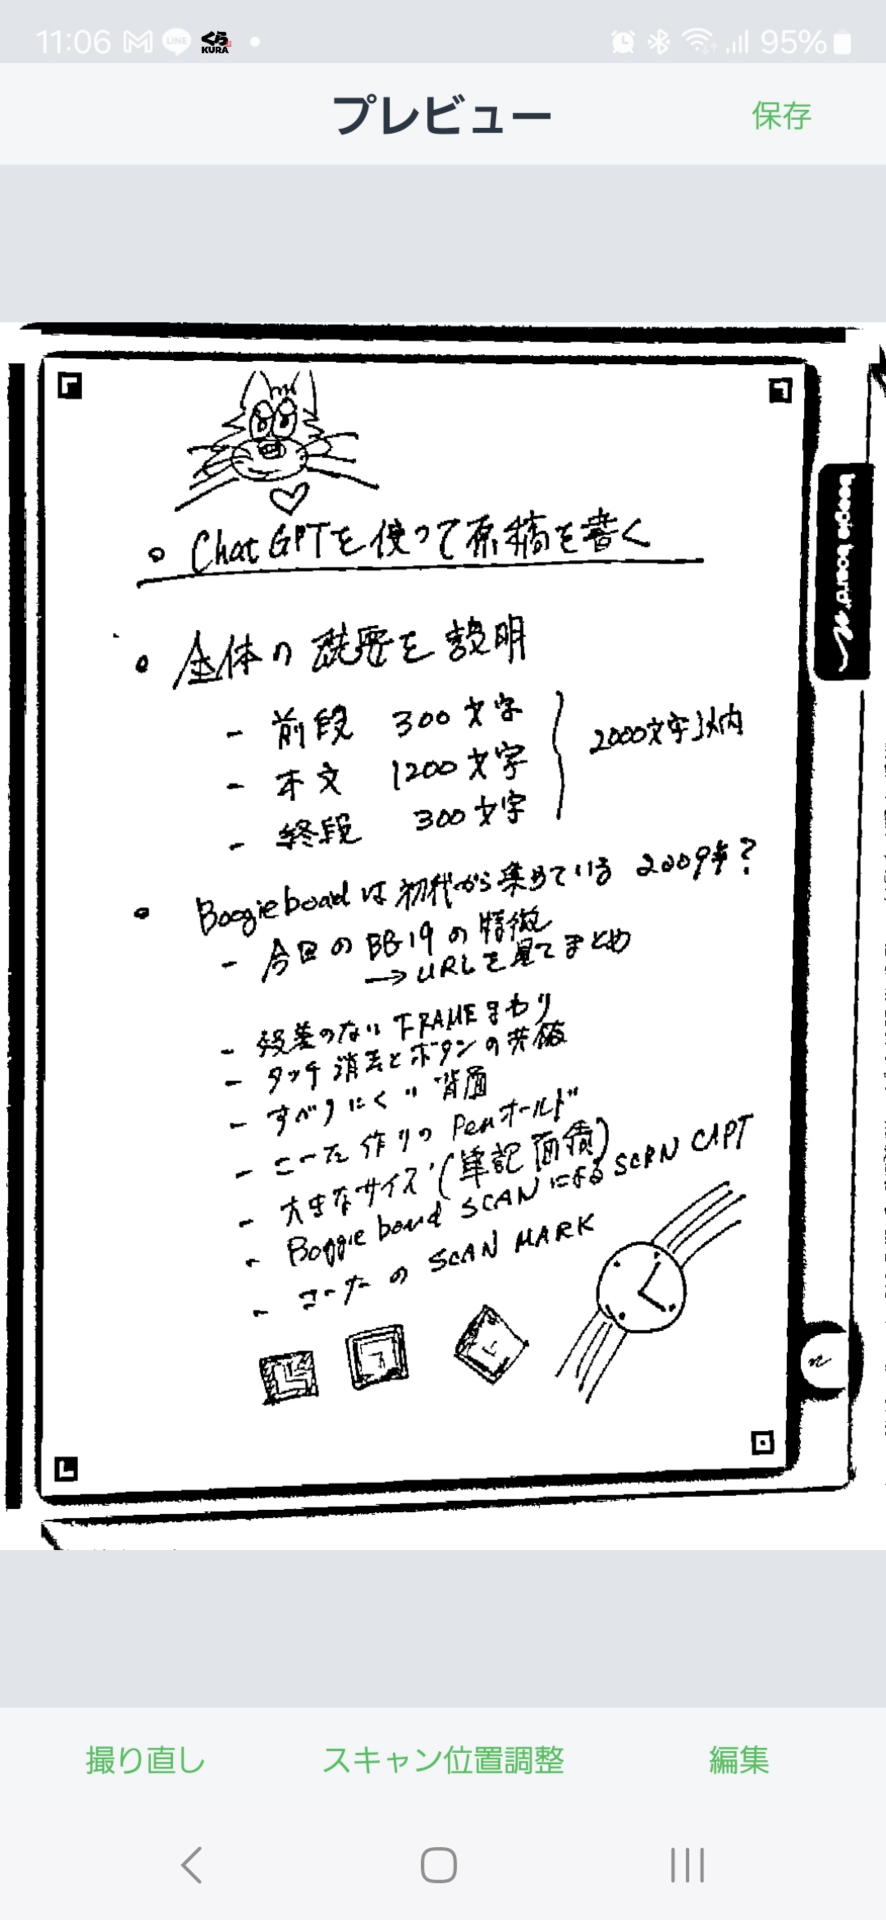 11:06 LINE くら KURA 95%
プレビュー 保存
ChatGPTを使って原稿を書く
全体の概要を説明
- 前段 300文字
- 本文 1200文字
- 終段 300文字
2000文字以内
Boogieboardは初代から集めている 2009年?
- 今回のBB19の特徴
→URLを見てまとめ
- 段差のないFRAMEまわり
- タッチ消去とボタンの
- すべりにくい背面
- こった作りのPenホールド
- 大きなサイズ(筆記面積)
- Boggie board SCANによるSCAN CAPT
- コーナーのSCAN MARK
boogie board
撮り直し スキャン位置調整 編集